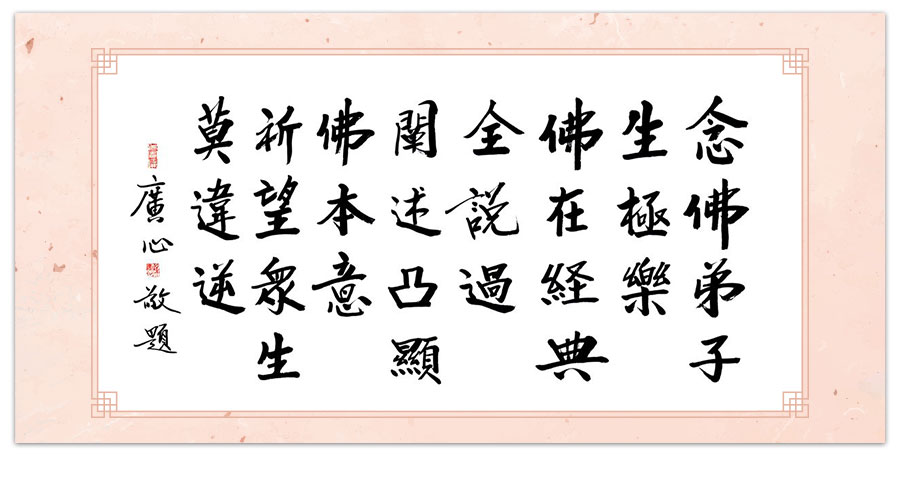 念佛弟子
生極樂
佛在経典
全説過
闡述凸顯
佛本意
祈望眾生
莫違逆
廣心敬題